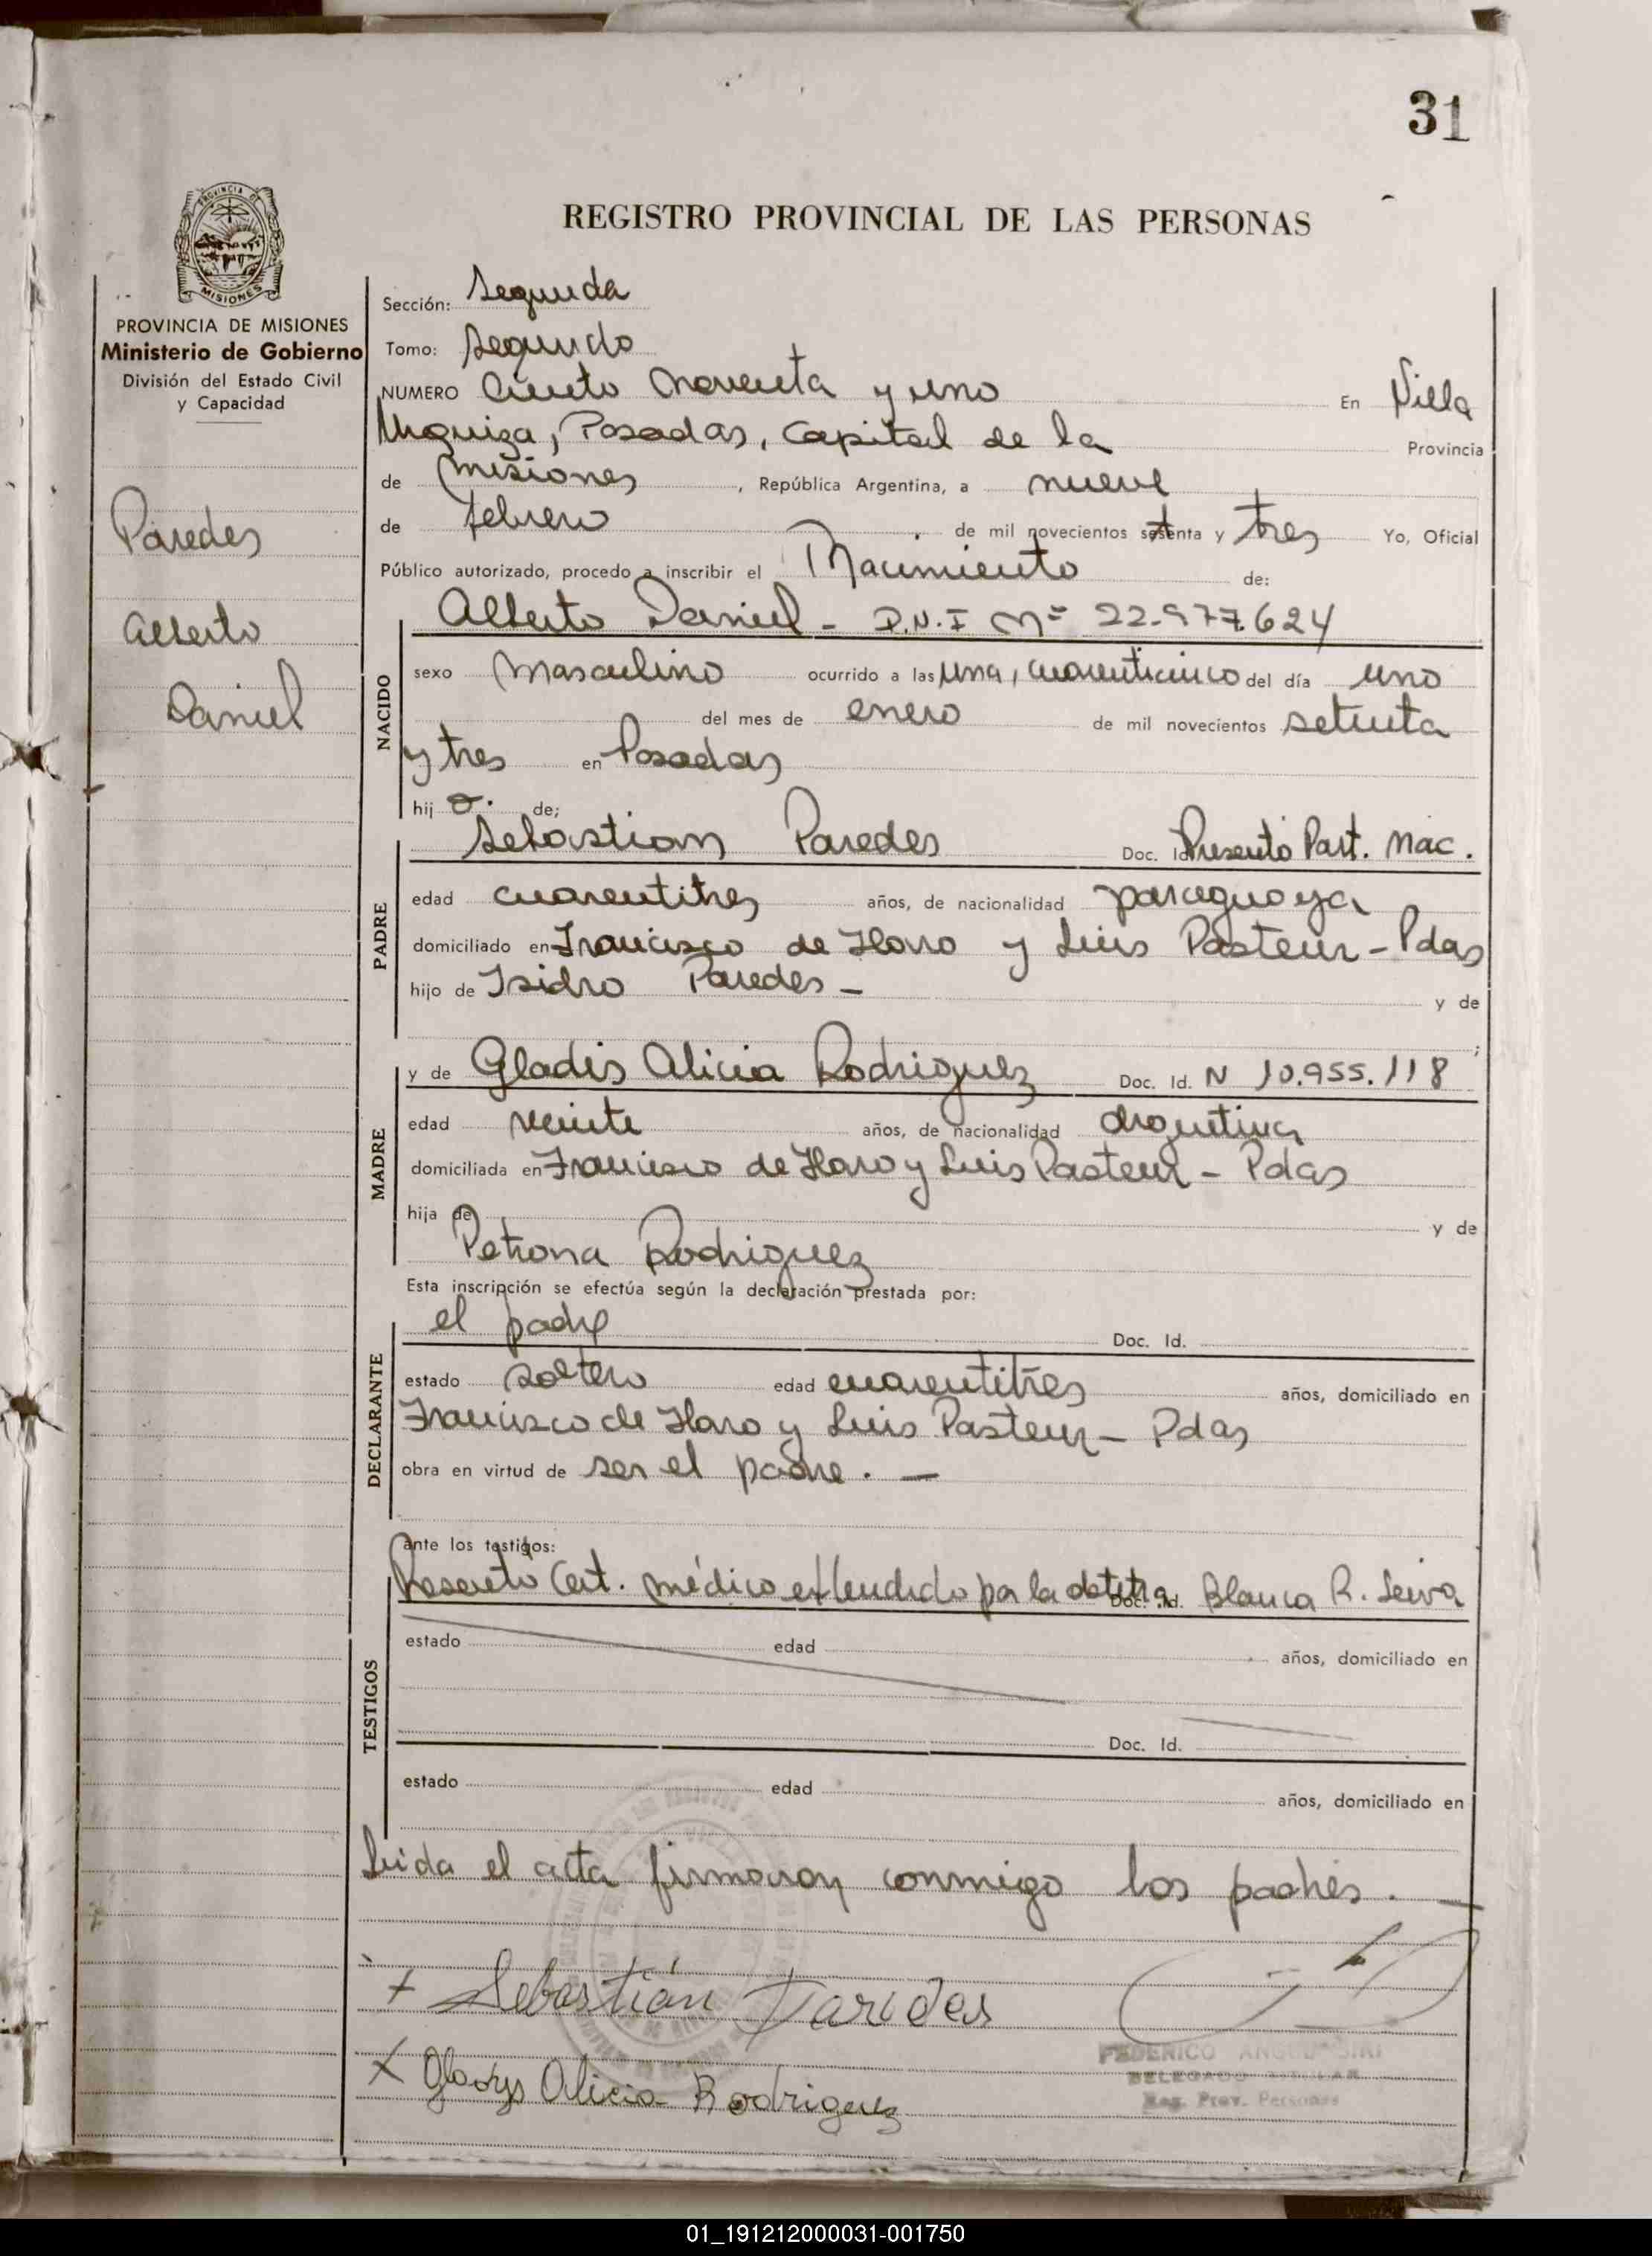 31
PROVINCIA DE
MISIONES
REGISTRO PROVINCIAL DE LAS PERSONAS
PROVINCIA DE MISIONES
Ministerio de Gobierno
División del Estado Civil
y Capacidad
Paredes
Alberto
Daniel
Sección: Segunda
Tomo: Segundo
NUMERO Ciento noventa y uno En Villa
Urquiza, Posadas, Capital de la Provincia
de Misiones, República Argentina, a nueve
de febrero de mil novecientos setenta y tres Yo, Oficial
Público autorizado, procedo a inscribir el Nacimiento de:
NACIDO
Alberto Daniel - D.N.I Nº 22.977.624
sexo Masculino ocurrido a las una, cuarenticinco del día uno
del mes de enero de mil novecientos setenta
y tres en Posadas
hijo. de;
PADRE
Sebastian Paredes Doc. Id. Presentó Part. Nac.
edad cuarentitres años, de nacionalidad paraguaya
domiciliado en Francisco de Haro y Luis Pasteur - Pdas
hijo de Isidro Paredes - y de
;
MADRE
y de Gladis Alicia Rodriguez Doc. Id. N 10.955.118
edad veinte años, de nacionalidad argentina
domiciliada en Francisco de Haro y Luis Pasteur - Pdas
hija de y de
Petrona Rodriguez
Esta inscripción se efectúa según la declaración prestada por:
DECLARANTE
el padre Doc. Id.
estado soltero edad cuarentitres años, domiciliado en
Francisco de Haro y Luis Pasteur - Pdas
obra en virtud de ser el padre. -
ante los testigos:
TESTIGOS
Presentó Cert. médico extendido por la obstetra Doc. Id. Blanca R. Leiva
estado edad años, domiciliado en
Doc. Id.
estado edad años, domiciliado en
Leida el acta firmaron conmigo los padres. -
x Sebastián Paredes
x Gladys Alicia Rodriguez
FEDERICO
DELEGADO TITULAR
Reg. Prov. Personas
01_191212000031-001750